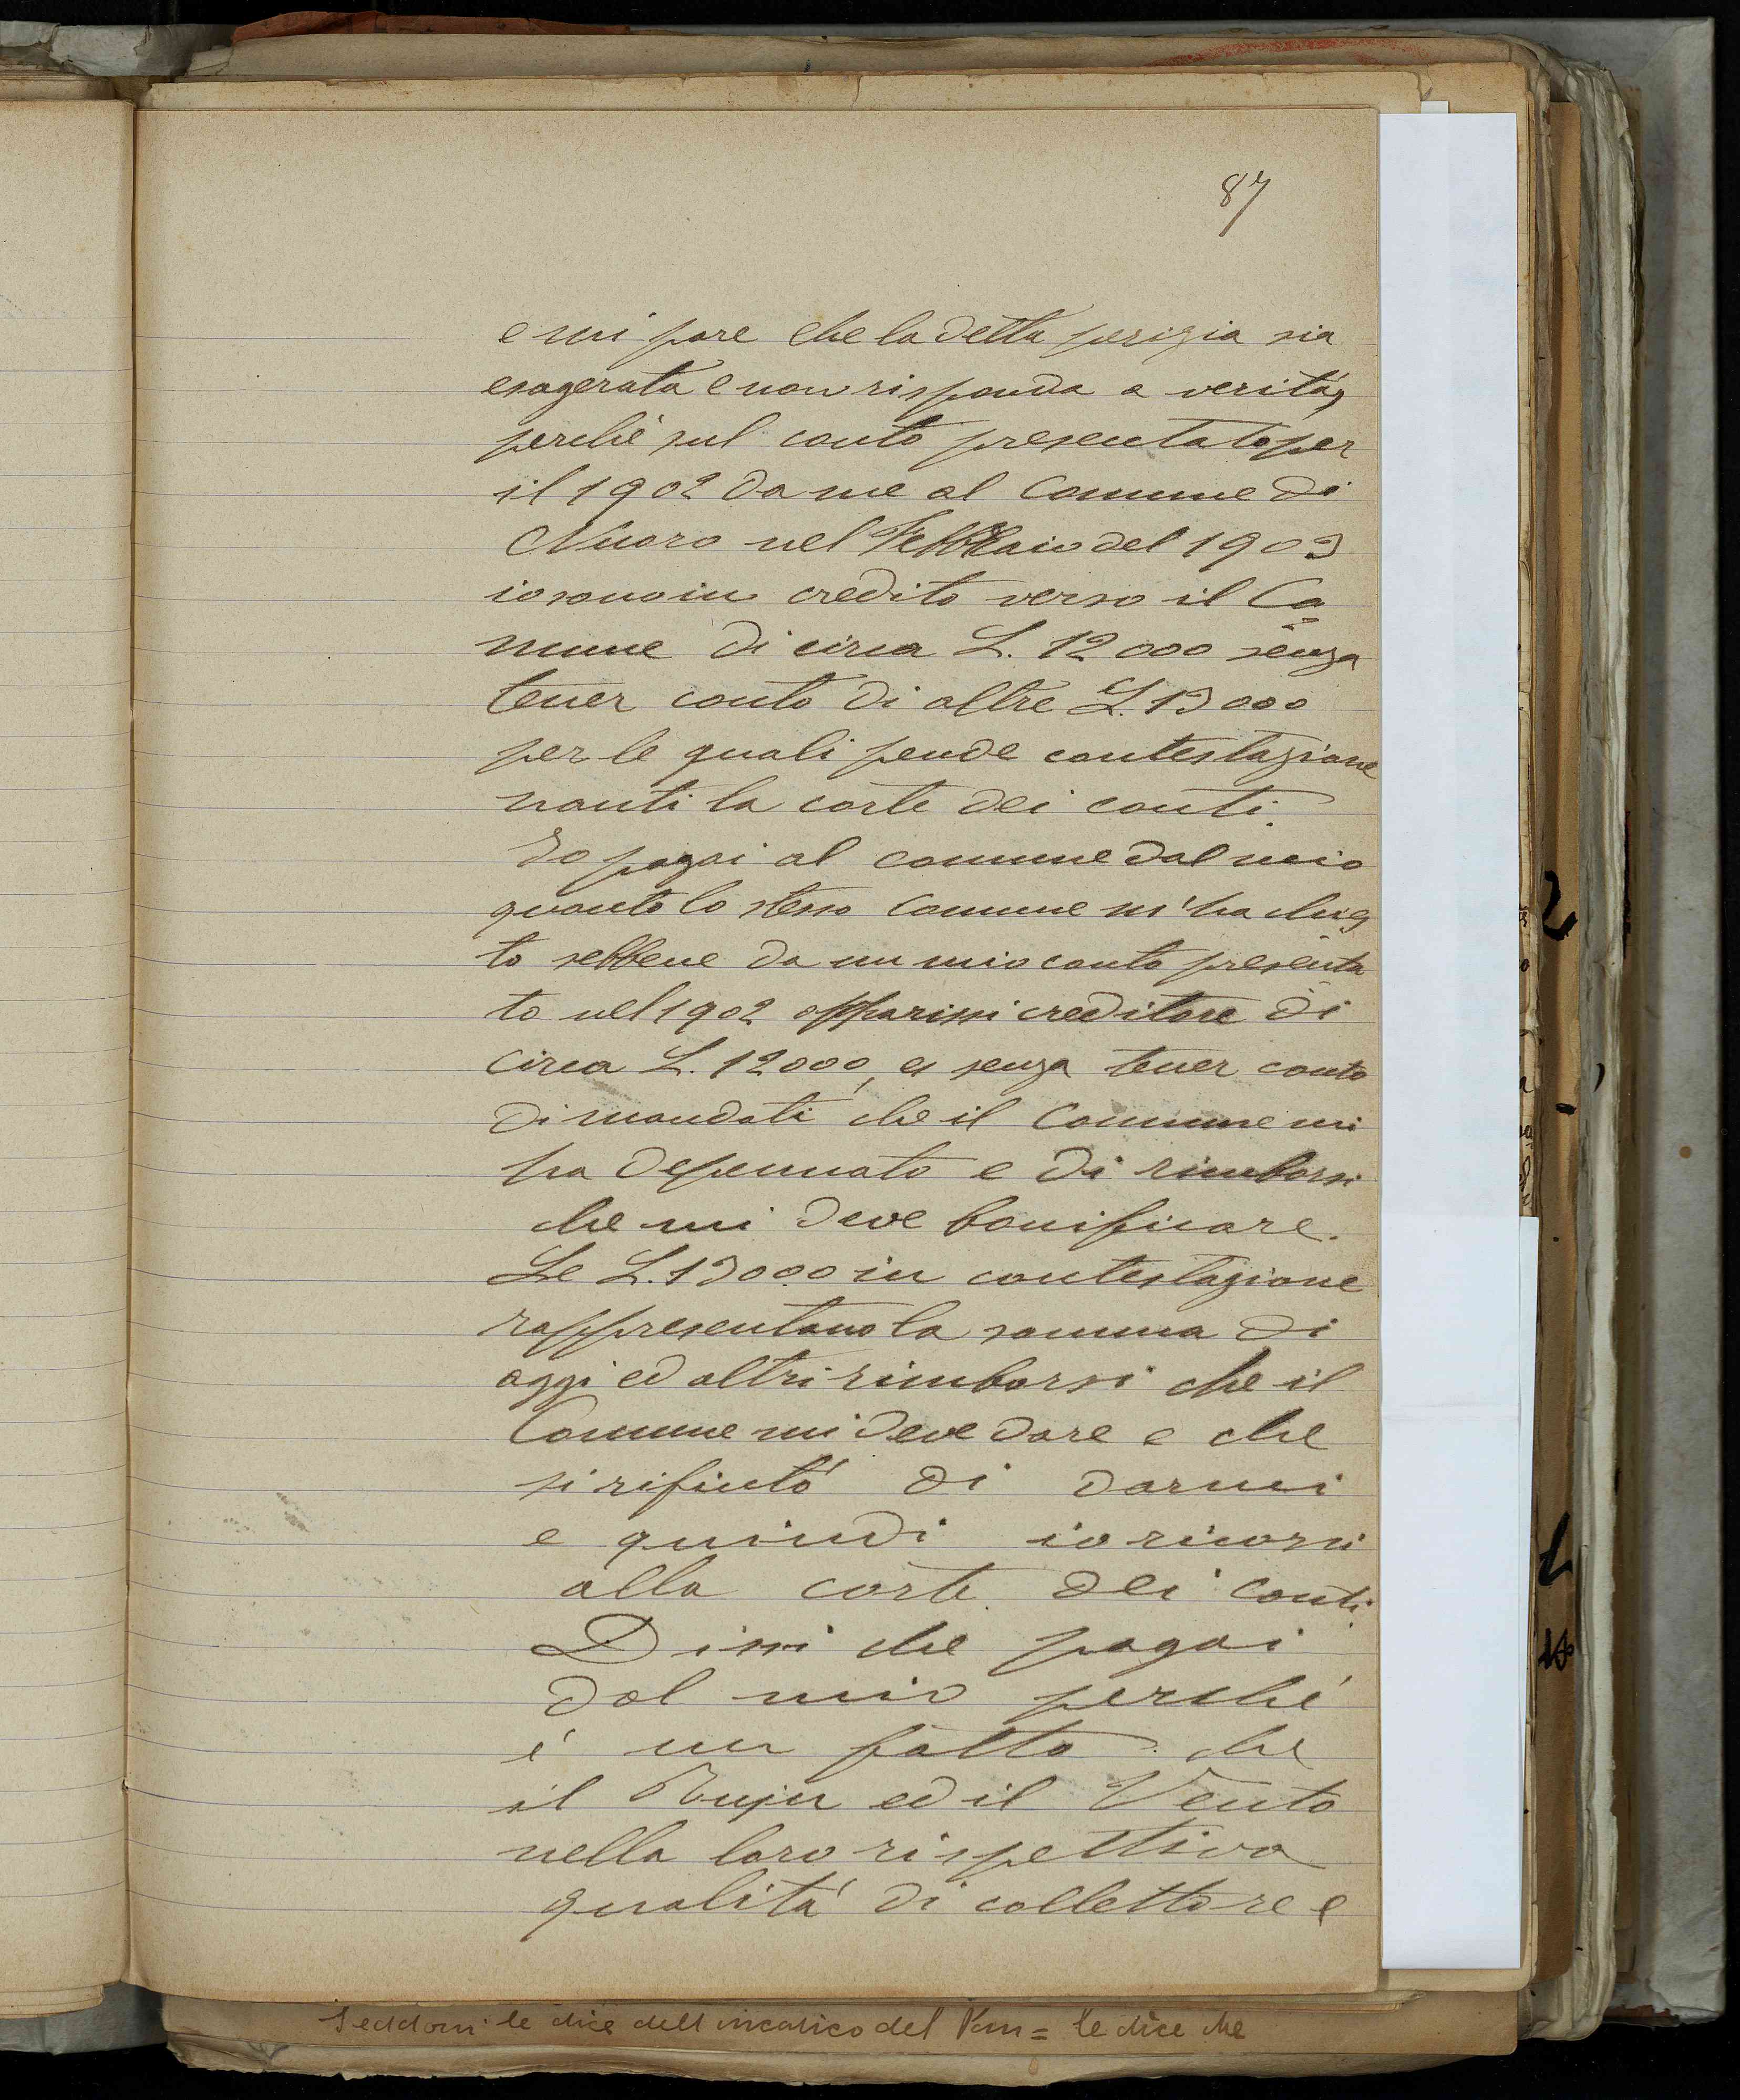 87
e mi pare che la detta perizia sia
esagerata e non risponda a verità,
perchè sul conto presentato per
il 1902 da me al Comune di
Nuoro nel Febbraio del 1903
io sono in credito verso il Co
mune di circa L. 12000 senza
tener conto di altre L. 13000
per le quali pende contestazione
nanti la corte dei conti.
Io pagai al comune dal mio
quanto lo stesso Comune m'ha chies
to sebbene da un mio conto presenta
to nel 1902 apparissi creditore di
circa L. 12000, e senza tener conto
di mandati che il Comune mi
ha depennato e di rimborsi
che mi deve bonificare.
Le L. 13000 in contestazione
rappresentano la somma di
aggi ed altri rimborsi che il
Comune mi deve dare e che
si rifiutò di darmi
e quindi io ricorsi
alla corte dei conti.
Dissi che pagai
dal mio perchè
è un fatto che
il Ruju ed il Vento
nella loro rispettiva
qualità di collettore e
le dice dell'incarico del = le dice che